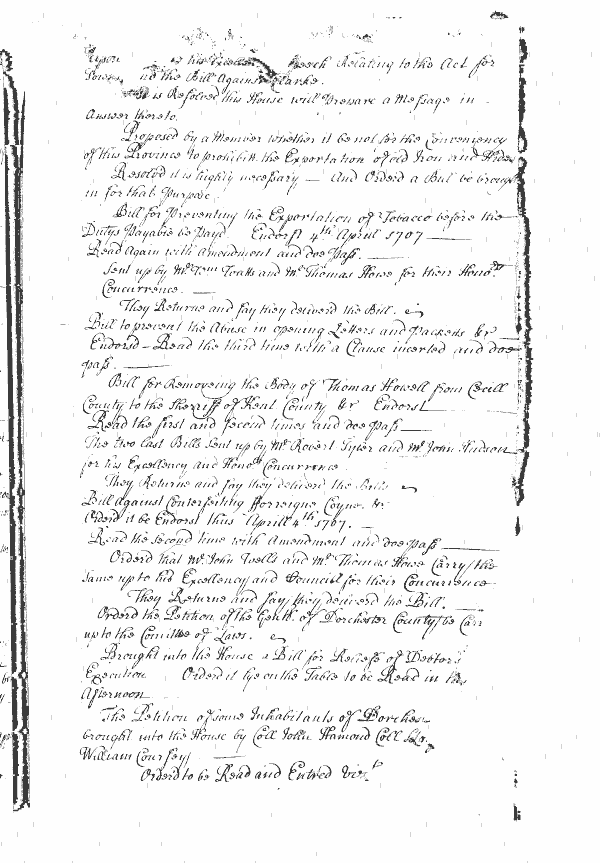 upon his Excellcy Speech Relating to the Act for
Towns and the Bill Against Clarke.
It is Resolved this House will Prepare a Message in
Answer thereto.
Proposed by a Member whether it be not for the Conveniency
of this Province to prohibitt the Exportation of old Iron and Hides
Resolvd it is highly necessary — And Orderd a Bill be brough
in for that purpose
Bill for Preventing the Exportation of Tobacco before the
Dutys Payable be Payd Endorst 4th April 1707 —
Read Again with Amendment and doe Pass. —
Sent up by Mr and Mr Thomas Howe for their Honors
Concurrence. —
They Returne and say they deliverd the Bill.
Bill to prevent the Abuse in opening Letters and packetts &c
Endorsd — Read the third time with a Clause incerted and doe
pass. —
Bill for Removeing the Body of Thomas Howell from Cecill
County to the Sherriff of Kent County &c Endorst
Read the first and second times and doe pass —
The two last Bills sent up by Mr Robert Tyler and Mr John Hudson
for his Excellency and Honors Concurrence
They Returne and say they deliverd the Bills
Bill Against Conterfeiting Forreigne Coyne. &c
Orderd it be Endorst thus Aprill 4th 1707. —
Read the second time with Amendment and doe pass —
Orderd that Mr John Wells and Mr Thomas Howe Carry the
same up to his Excellency and Council for their Concurrence
They Returne and say they deliverd the Bill.
Orderd the Petition of the Gentn. of Dorchester County be Carr
up to the Comittee of Laws.
Brought into the House a Bill for Releife of Debtors
Execution Orderd it lye on the Table to be Read in the
Afternoon
The Petition of some Inhabitants of Dorches
brought into the House by Coll John Hamond Coll
William Coursey —
Orderd to be Read and Entred vizt